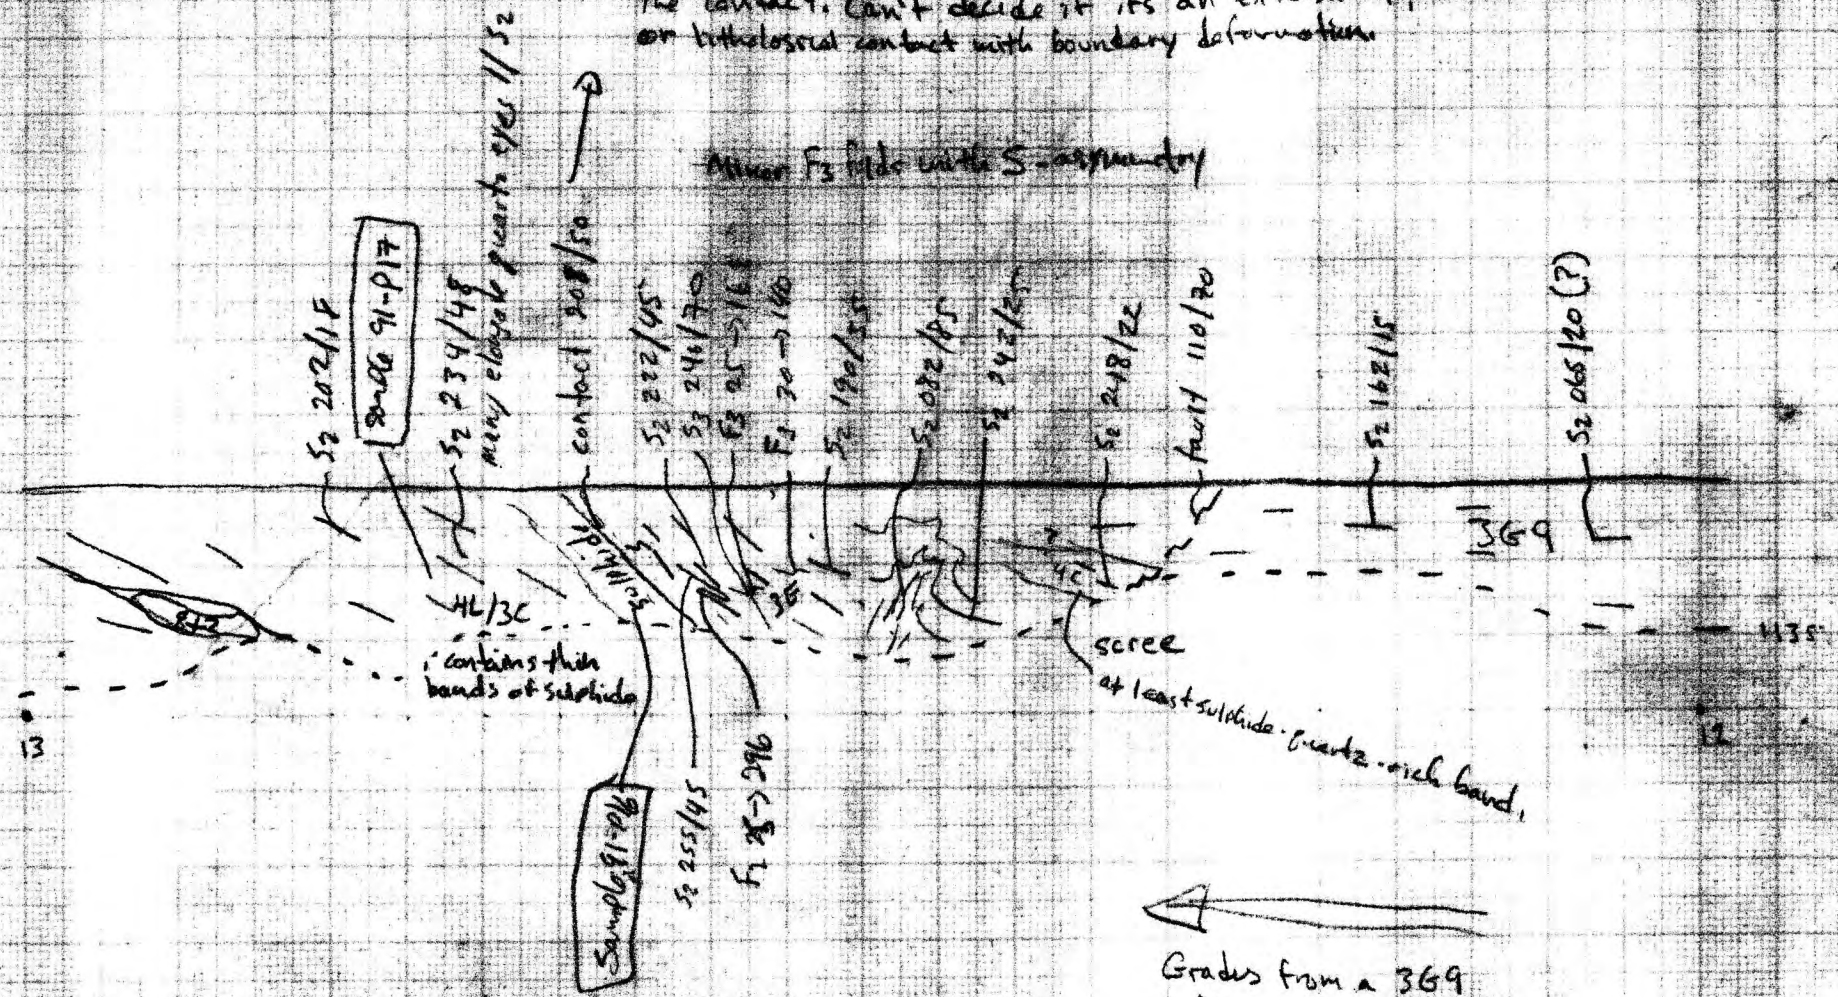 the contact. Can't decide if its an
or lithological contact with boundary deformation.
Minor F3 folds with S-asymmetry
S2 202/18
Sample 91-P17
S2 234/48
many elongate quartz eyes // S2
contact 208/50
S2 222/45
S3 240/70
F3 25->
F3 30->140
S2 190/35
S2 082/85
S2 042/25
S2 248/22
fault 110/70
S2 162/15
S2 065/20(?)
sulphide
3G9
3E
4L/3C
contains thin
bands of sulphide
scree
at least sulphide-quartz-rich band.
1135
13
12
Sample 91-P16
S2 255/45
->296
Grades from a 3G9